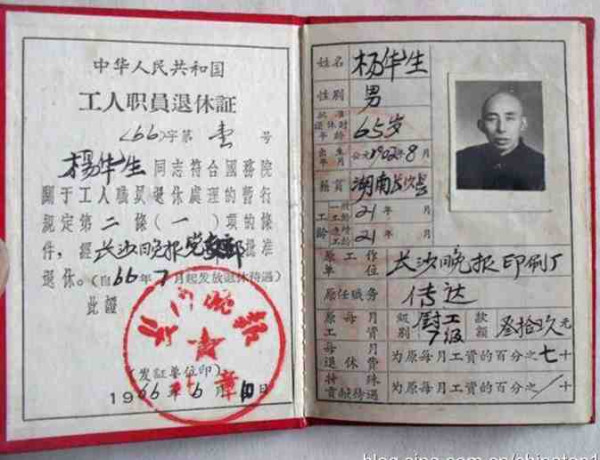 中华人民共和国
工人职员退休証
(66)字第 壹 号
杨华生 同志符合國務院
關于工人職員退休處理的暫行
規定第二條(一)項的條
件,經长沙晚报党支部批准
退休。(自66年7月起发放退休待遇)
此證
长沙晚報
(发証单位印)
1966年6月10日
姓名 杨华生
性别 男
批准退休时年龄 65岁
出生年月 公元1902年8月
籍貫 湖南长沙
工龄 一般工龄 21年 月
21年 月
原工作单位 长沙晚报印刷厂
原任職务 传达
原每月工資 級别 厨工7级 款额 叁拾玖元
每月退休费 为原每月工資的百分之七十
特殊贡献待遇 为原每月工資的百分之/十